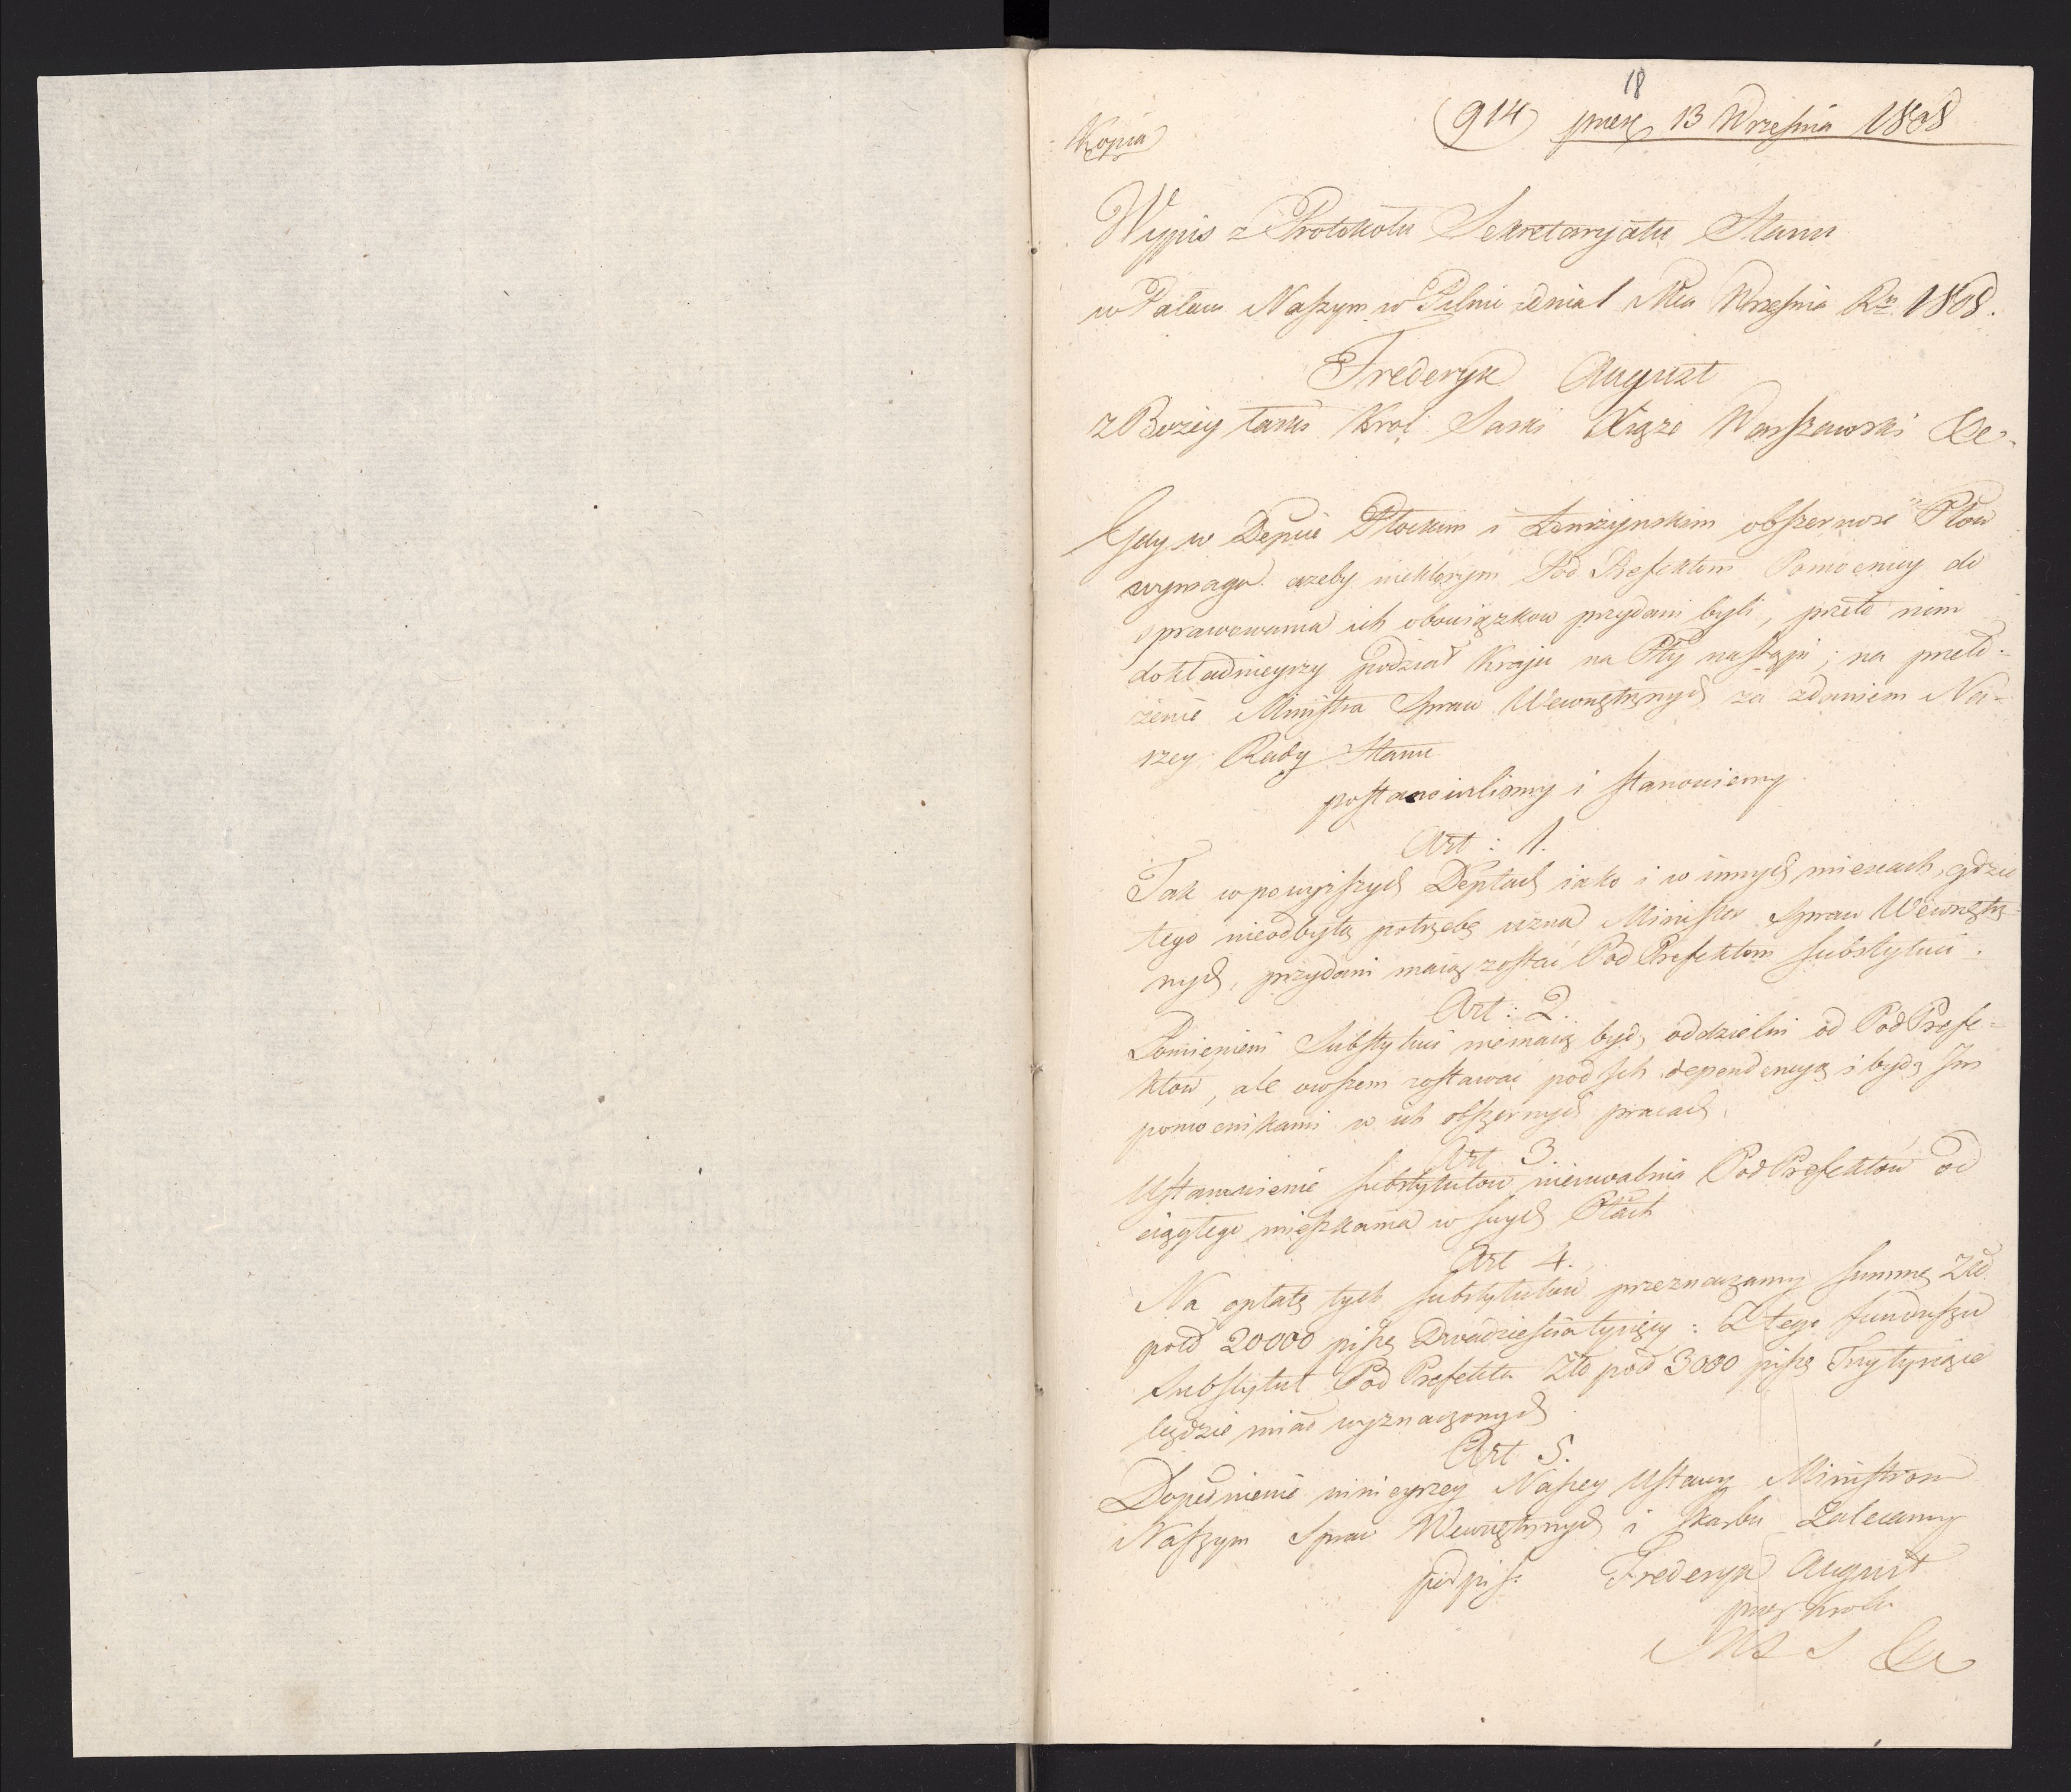 18
(914) prez 13 Września 1808
Kopia
Wypis z Protokołu Sekretaryatu Stanu
w Pałacu Naszym w Pilnic dnia 1 Mca Września Ru 1808.
Frederyk August
z Bożey łaski Krol Saski Xiąże Warszawski &c.
Gdy w Depcie Płockim i Łomżynskim obszerność Ptow
wymaga ażeby niektorym Pod Prefektom Pomocnicy do
sprawowania ich obowiązkow przydani byli, przeto nim
dokładnieyszy podział Kraju na Pty nastąpi; na przeło-
żenie Ministra Spraw Wewnętrznych za zdaniem Na-
szey Rady Stanu
postanowilismy i stanowiemy
Art: 1.
Tak w powyższych Deptach iako i w innych mieyscach, gdzie
tego nieodbytą potrzebę uzna Minister Spraw Wewnętrz-
nych, przydani maią zostać Pod Prefektom Substytuci.
Art: 2.
Pomienieni Substytuci niemaią bydz oddzielni od Pod Prefe-
ktow, ale owszem zostawać pod Ich dependencyą i bydz Im
pomocnikami w ich obszernych pracach.
Art 3.
Ustanowienie Substytutow nieuwalnia Pod Prefektow od
ciągłego mieszkania w swych Ptach
Art 4.
Na opłatę tych Substytutow przeznaczamy Summę Złł.
pold 20000 piszę Dwadzieścia tysięcy: Z tego funduszu
Substytut Pod Prefekta Złł pol 3000 piszę Trzy tysiące
będzie miał wyznaczonych
Art 5.
Dopełnienie ninieyszey Naszey Ustawy Ministrom
Naszym Spraw Wewnętrznych i Skarbu Zalecamy
podpis. Frederyk August
przez Krola
M S S &c